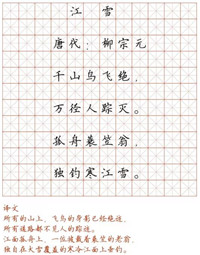 江 雪
唐代：柳宗元
千山鸟飞绝，
万径人踪灭。
孤舟蓑笠翁，
独钓寒江雪。
译文
所有的山上，飞鸟的身影已经绝迹，
所有道路都不见人的踪迹。
江面孤舟上，一位披戴着蓑笠的老翁，
独自在大雪覆盖的寒冷江面上垂钓。